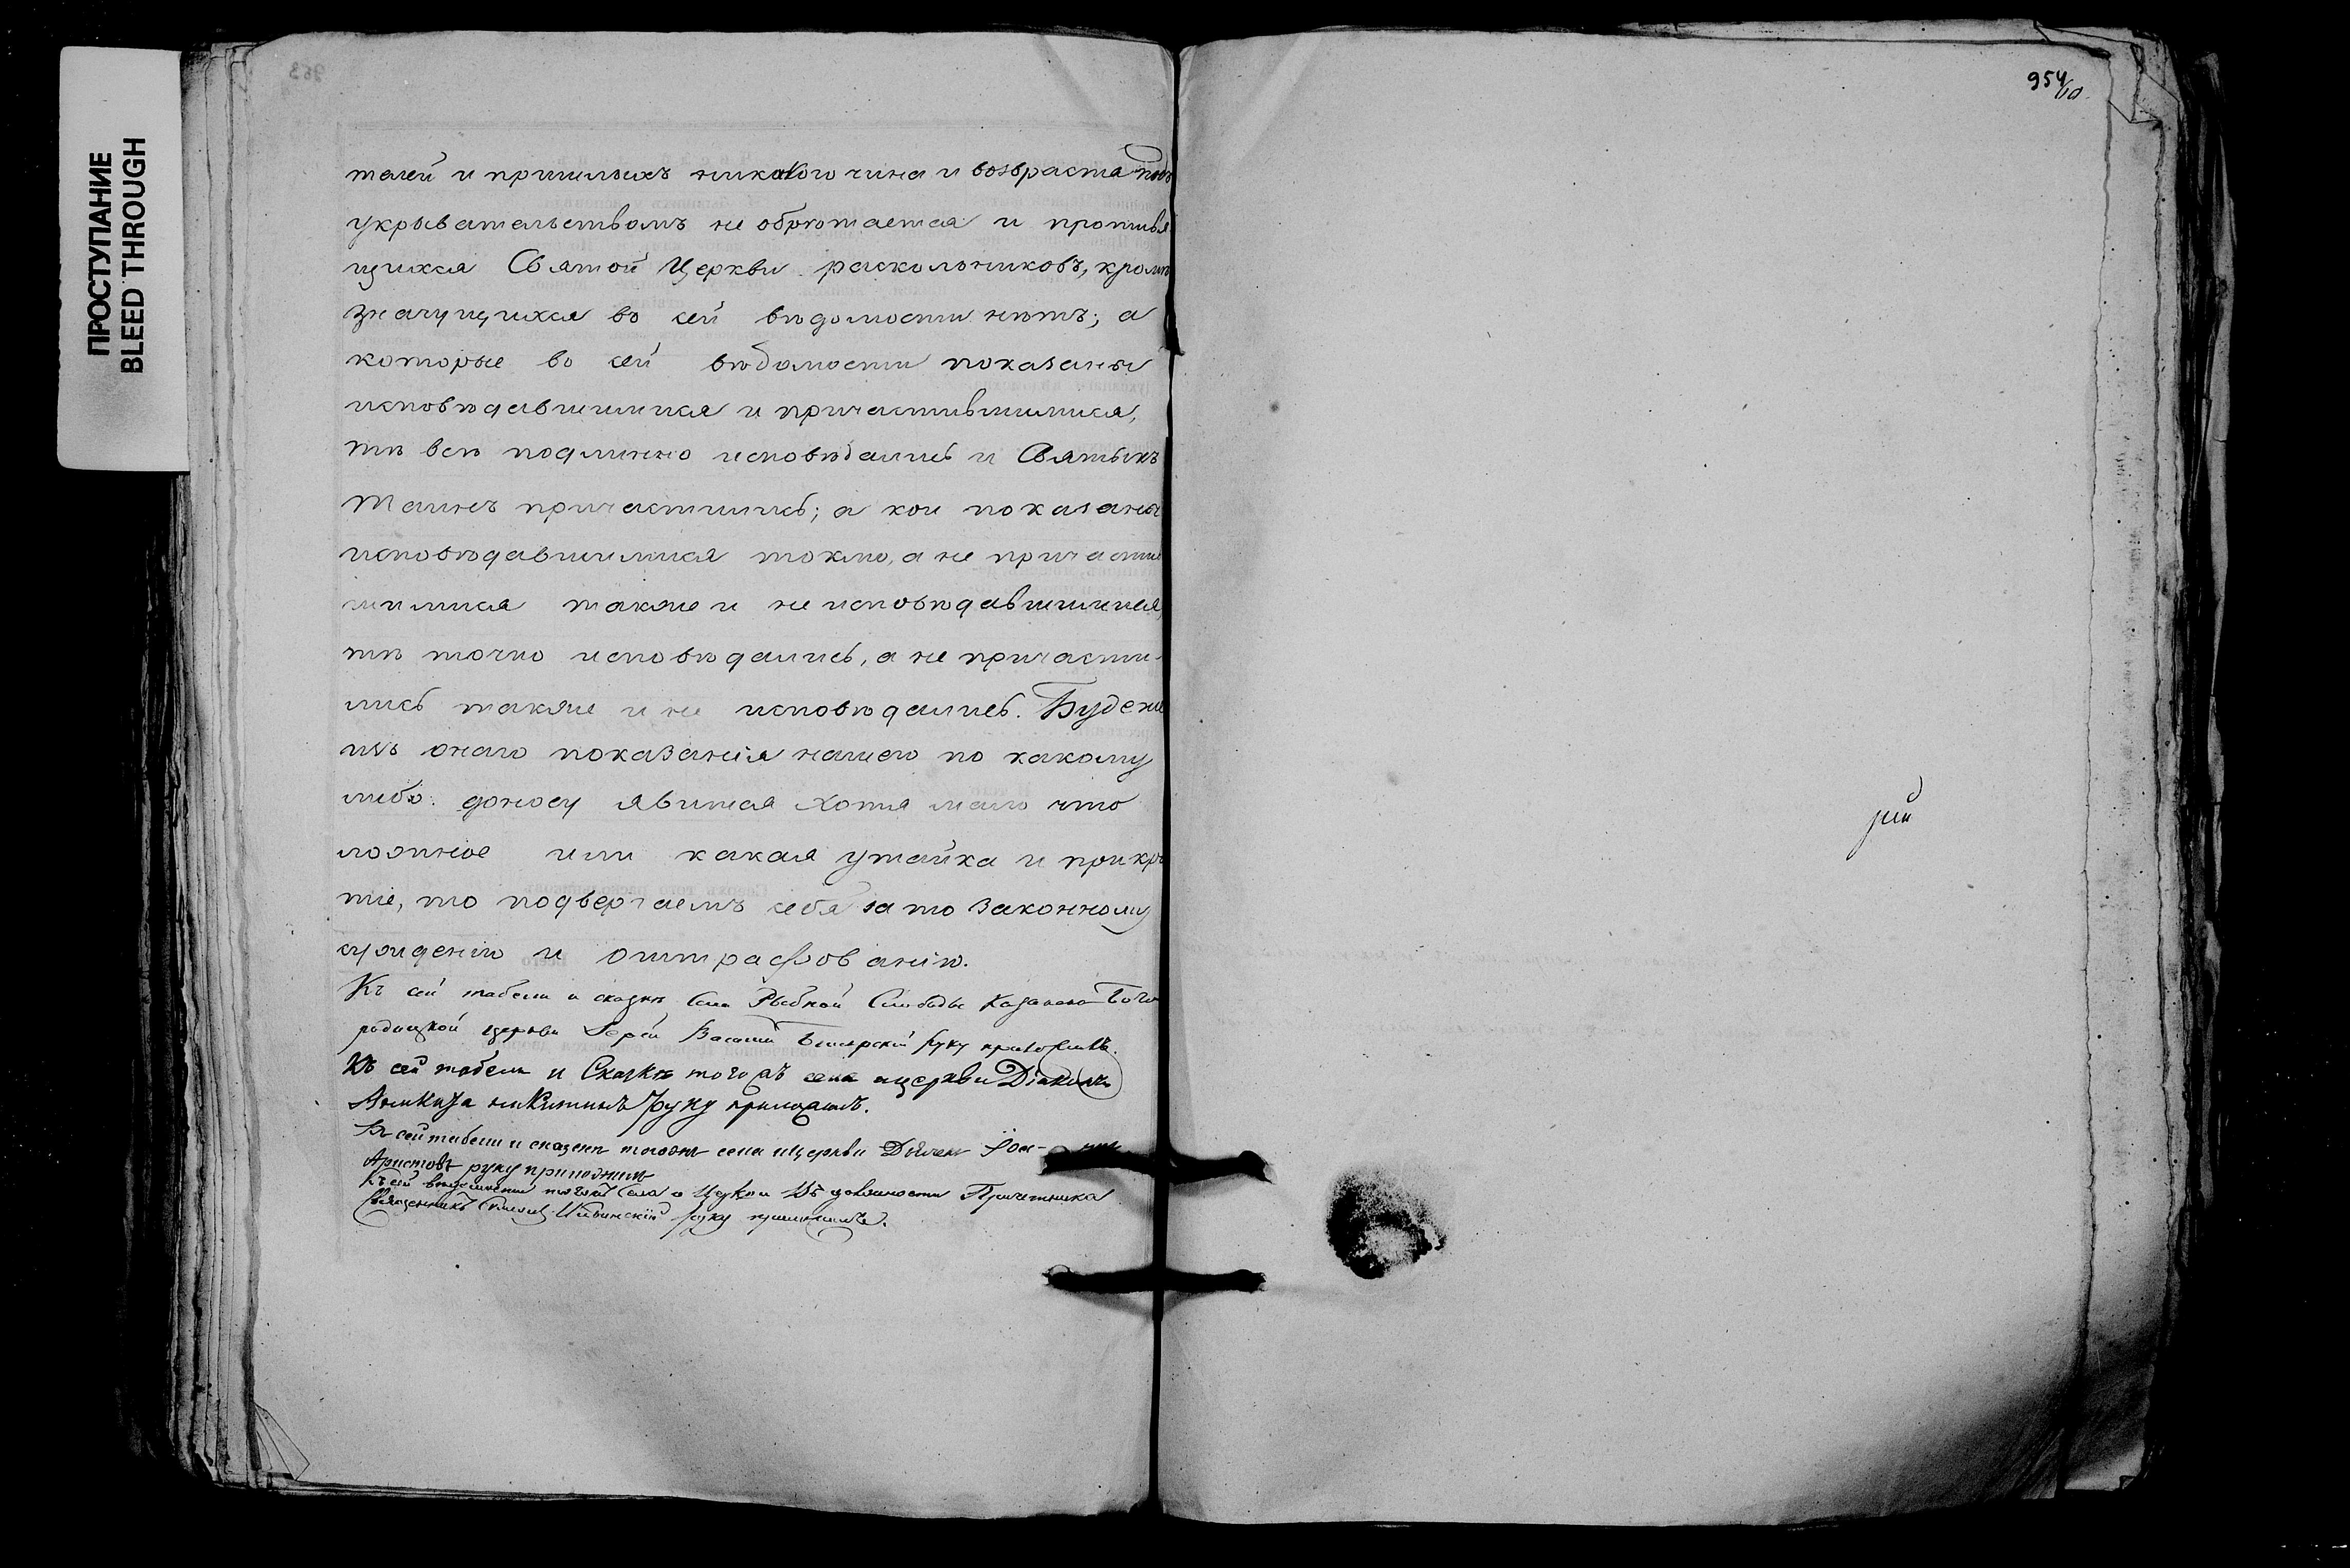 ПРОСТУПАНИЕ
BLEED THROUGH
963
954
телей и пришлыхъ никакого чина и возраста подъ
укрывательствомъ не обрѣтается и противя
щихся Святой Церкви раскольниковъ, кромѣ
значущихся во сей вѣдомости нѣтъ; а
которые во сей вѣдомости показаны
исповѣдавшимися и причастившимися,
тѣ всѣ подлинно исповѣдались и Святыхъ
Таинъ причастились; а кои показаны
исповѣдавшимися токмо, а не причастив
шимися также и не исповѣдавшимися,
тѣ точно исповѣдались, а не причасти-
лись также и не исповѣдались. Буде же
изъ онаго показанія нашего по какому
либо доносу явится хотя мало что
ложное или какая утайка и прикры
тіе, то подвергаемъ себя за то законному
сужденію и оштрафованію.
Къ сей табели и сказкѣ Села Рыбной Слободы Казанско Бого
родицкой церкви Іерей Василій руку приложилъ.
Къ сей табели и Сказкѣ тогожъ села и церкви Діаконъ
Аникита Никитинъ руку приложилъ.
Къ сей табели и сказкѣ тогожъ села и церкви Дьячекъ
Аристовъ руку приложилъ
Къ сей тогожъ Села и Церкви въ должности Причетника
Священникъ руку приложилъ.